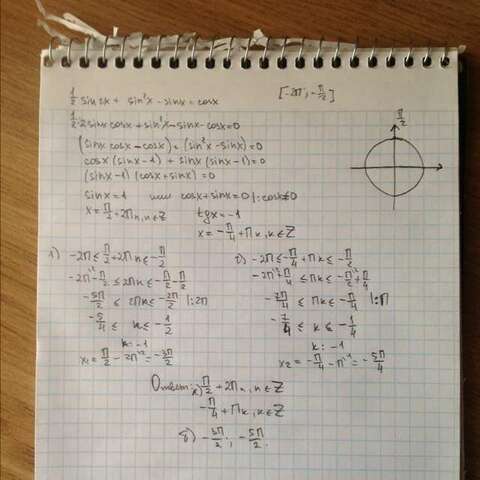 1/2 sin2x + sin²x - sinx = cosx [-2π; -π/2]
1/2·2sinx cosx + sin²x - sinx - cosx = 0
(sinx cosx - cosx) + (sin²x - sinx) = 0
cosx (sinx - 1) + sinx (sinx - 1) = 0
(sinx - 1) (cosx + sinx) = 0
π/2
sinx = 1 или cosx + sinx = 0 |: cosx ≠ 0
x = π/2 + 2πn, n∈Z tgx = -1
x = -π/4 + πk, k∈Z
1) -2π ≤ π/2 + 2πk ≤ -π/2
-2π - π/2 ≤ 2πk ≤ -π/2 - π/2
-5π/2 ≤ 2πk ≤ -2π/2 |: 2π
-5/4 ≤ k ≤ -1/2
k: -1
x₁ = π/2 - 2π = -3π/2
2) -2π ≤ -π/4 + πk ≤ -π/2
-2π + π/4 ≤ πk ≤ -π/2 + π/4
-7π/4 ≤ πk ≤ -π/4 |: π
-7/4 ≤ k ≤ -1/4
k: -1
x₂ = -π/4 - π = -5π/4
Ответ: а) π/2 + 2πn, n∈Z
-π/4 + πk, k∈Z
б) -3π/2; -5π/2.